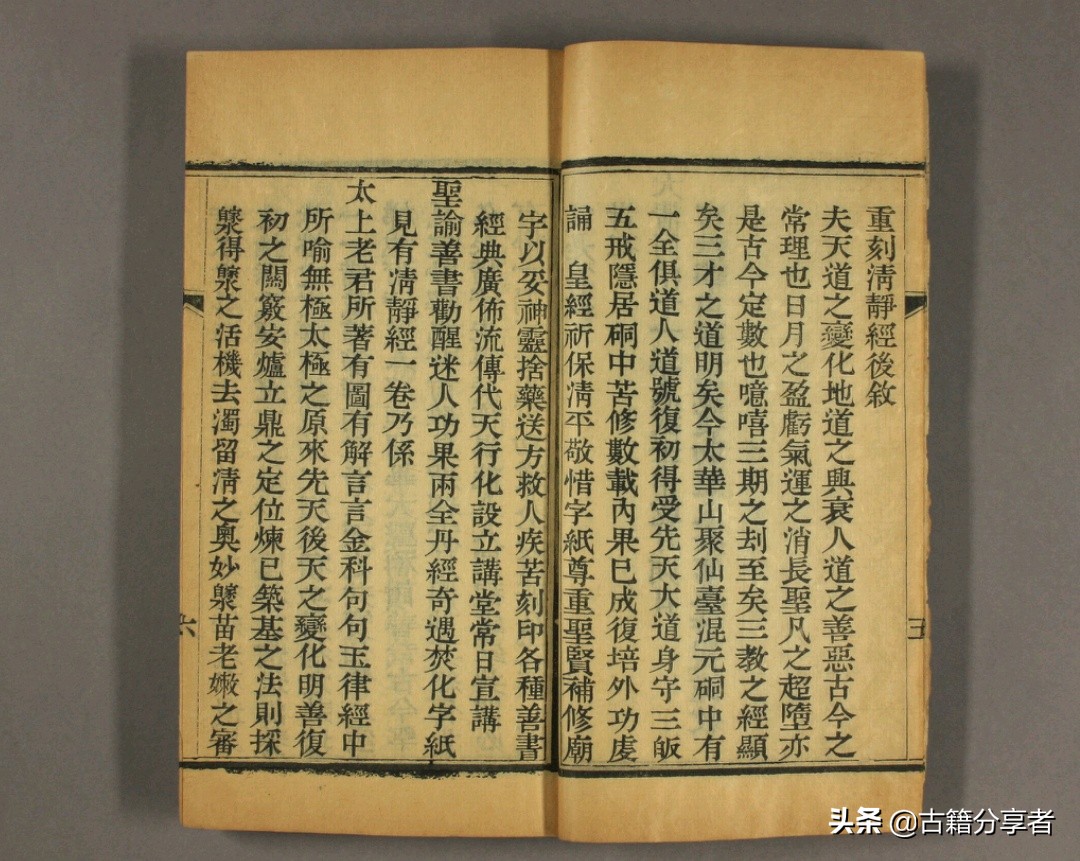 重刻清靜經後敘
夫天道之變化地道之興衰人道之善惡古今之
常理也日月之盈虧氣運之消長聖凡之超墮亦
是古今定數也噫嘻三期之刦至矣三教之經顯
矣三才之道明矣今太華山聚仙臺混元硐中有
一全俱道人道號復初得受先天大道身守三皈
五戒隱居硐中苦修數載內果已成復培外功虔
誦　皇經祈保清平敬惜字紙尊重聖賢補修廟
宇以妥神靈捨藥送方救人疾苦刻印各種善書
經典廣佈流傳代天行化設立講堂常日宣講
聖諭善書勸醒迷人功果兩全丹經奇遇焚化字紙
見有清靜經一卷乃係
太上老君所著有圖有解言言金科句句玉律經中
所喻無極太極之原來先天後天之變化明善復
初之關竅安爐立鼎之定位煉已築基之法則採
藥得藥之活機去濁留清之奧妙藥苗老嫩之審
五
六
头条 @古籍分享者